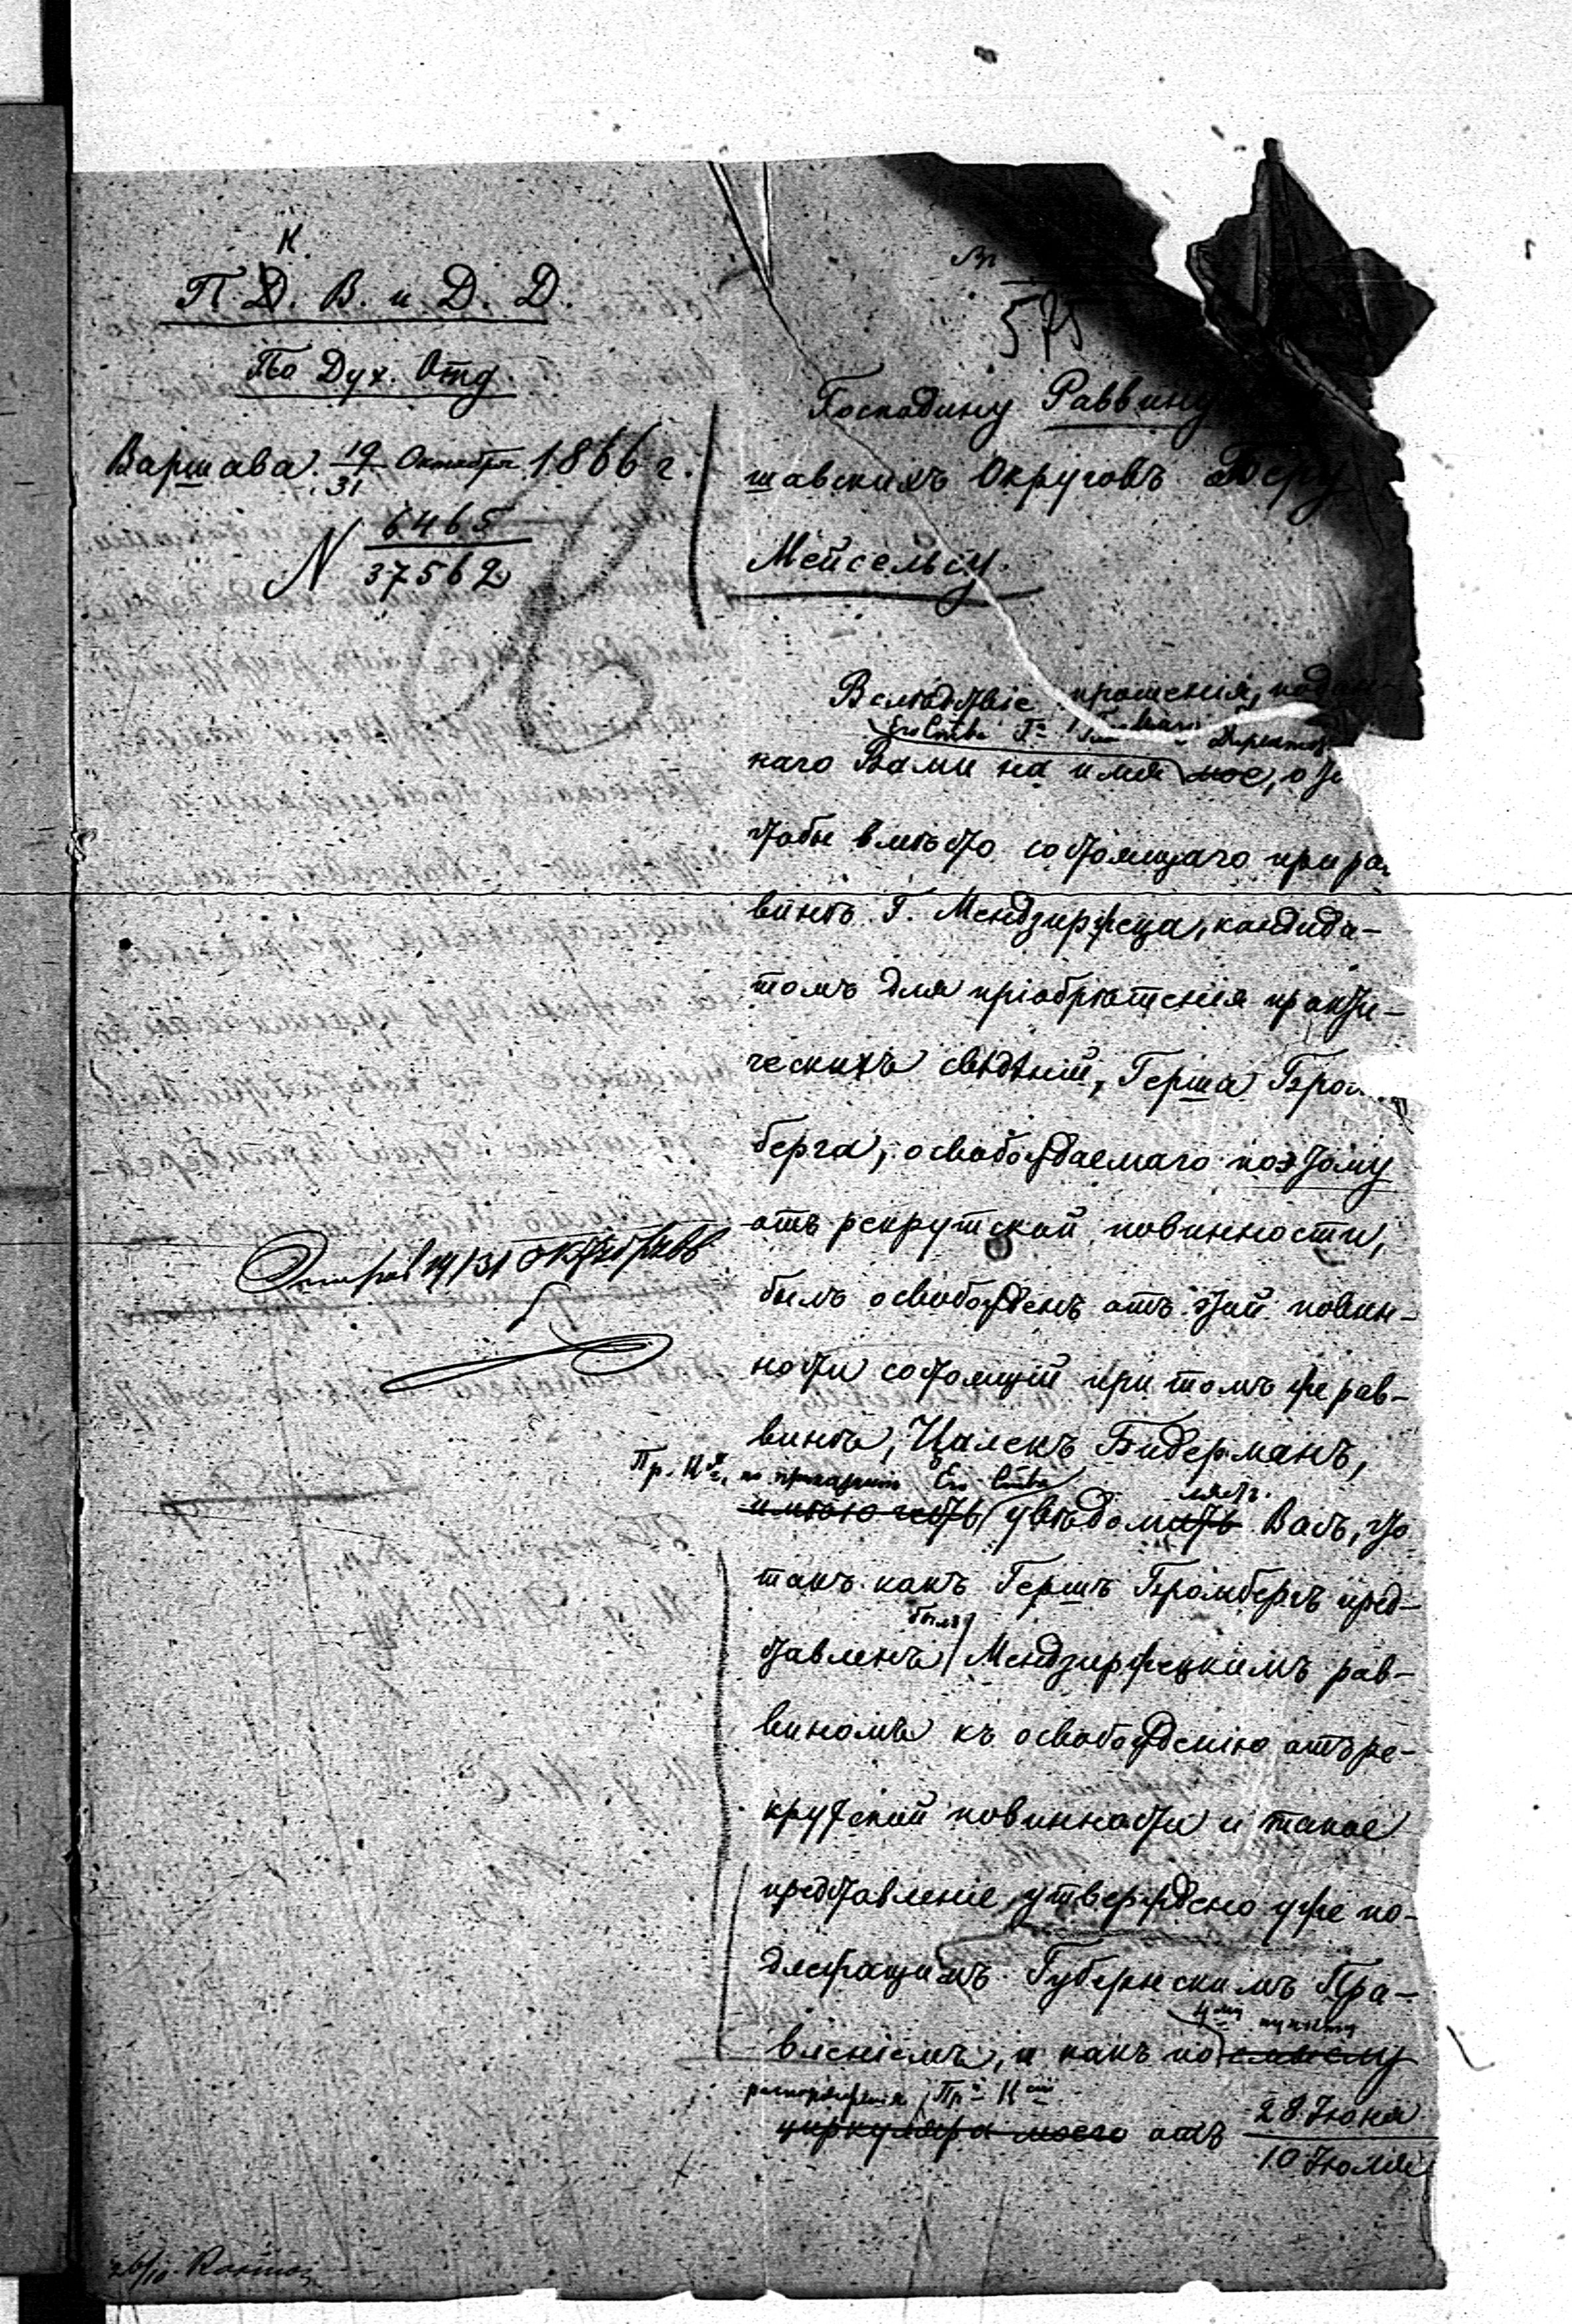 К
П. Д. В. и Д. Д.
По Дух. Отд.
Варшава. 19/31 Октября 1866 г.
N 6465/37562
575
Господину Раввину
шавскихъ Округовъ Беру
Мейсельсу.
Вслѣдствіе прошенія, подан
Его Ства Гна Главнаго Директо
наго Вами на имя мое, о
чтобы вмѣсто состоящаго при ра
винѣ Г. Мендзиржеца, кандида-
томъ для пріобрѣтенія практи-
ческихъ свѣдѣній, Герша Бром
берга, освобождаемаго поэтому
отъ рекрутской повинности,
былъ освобожденъ отъ этой повин-
ности состоящій при томъ же рав-
винѣ, Цалекъ Бидерманъ,
Пр. К., по приказанію Его Ства
ляетъ
имѣю честь увѣдомить Васъ, что
такъ какъ Гершъ Бромбергъ пред-
былъ
ставленъ Мендзиржецкимъ рав-
виномъ къ освобожденію отъ ре-
крутской повинности и такое
представленіе утверждено уже по-
длежащимъ Губернскимъ Пра-
4му пункту
вленіемъ, и какъ по смыслу
распоряженія Пр. К
циркуляра моего отъ 28 Іюня/10 Іюля
19/31 Октября 66
26/10